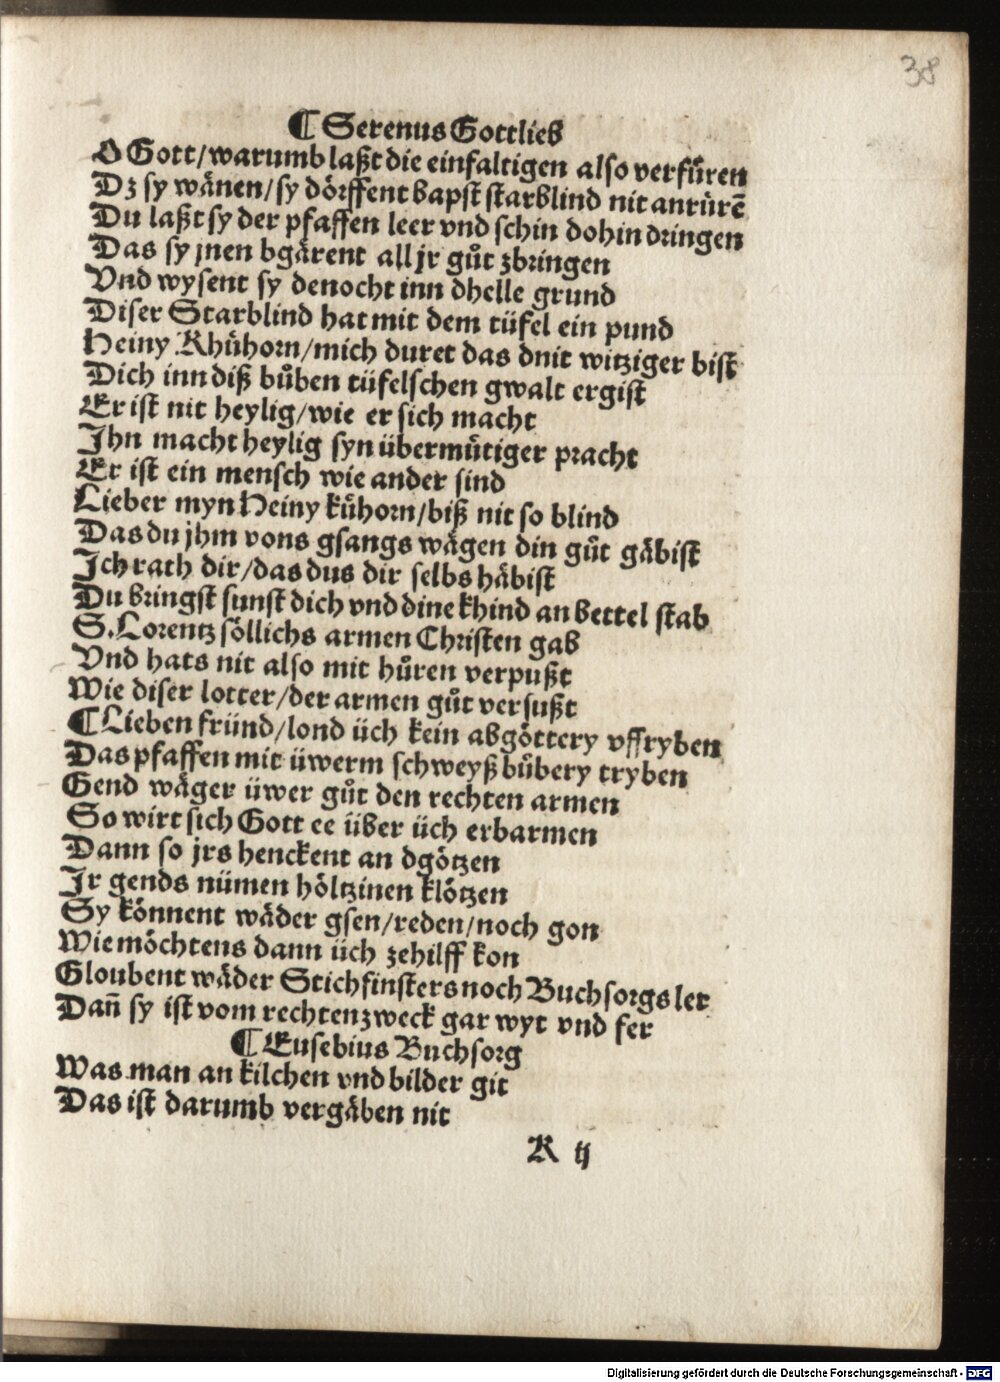 38
¶ Serenus Gottlieb
O Gott/warumb laßt die einfaltigen also verfuͤren
Dz sy waͤnen/sy doͤrffent bapst starblind nit anruͤrẽ
Du laßt sy der pfaffen leer vnd schin dohin dringen
Das sy jnen bgaͤrent all jr guͦt zbringen
Vnd wysent sy denocht inn dhelle grund
Diser Starblind hat mit dem tüfel ein pund
Heiny Khuͤhorn/mich duret das dnit witziger bist
Dich inn diß buͦben tüfelschen gwalt ergist
Er ist nit heylig/wie er sich macht
Ihn macht heylig syn übermuͤtiger pracht
Er ist ein mensch wie ander sind
Lieber myn Heiny kuͤhorn/biß nit so blind
Das du jhm vons gsangs waͤgen din guͦt gaͤbist
Ich rath dir/das dus dir selbs haͤbist
Du bringst sunst dich vnd dine khind an bettel stab
S. Lorentz soͤllichs armen Christen gab
Vnd hats nit also mit huͦren verpußt
Wie diser lotter/der armen guͦt versußt
¶ Lieben fründ/lond üch kein abgoͤttery vffryben
Das pfaffen mit üwerm schweyß buͦbery tryben
Gend waͤger üwer guͦt den rechten armen
So wirt sich Gott ee über üch erbarmen
Dann so jrs henckent an dgoͤtzen
Ir gends nümen hoͤltzinen kloͤtzen
Sy koͤnnent waͤder gsen/reden/noch gon
Wie moͤchtens dann üch zehilff kon
Gloubent waͤder Stichfinsters noch Buchsorgs ler
Dañ sy ist vom rechten zweck gar wyt vnd fer
¶ Eusebius Buchsorg
Was man an kilchen vnd bilder git
Das ist darumb vergaͤben nit
K ij
Digitalisierung gefördert durch die Deutsche Forschungsgemeinschaft - DFG